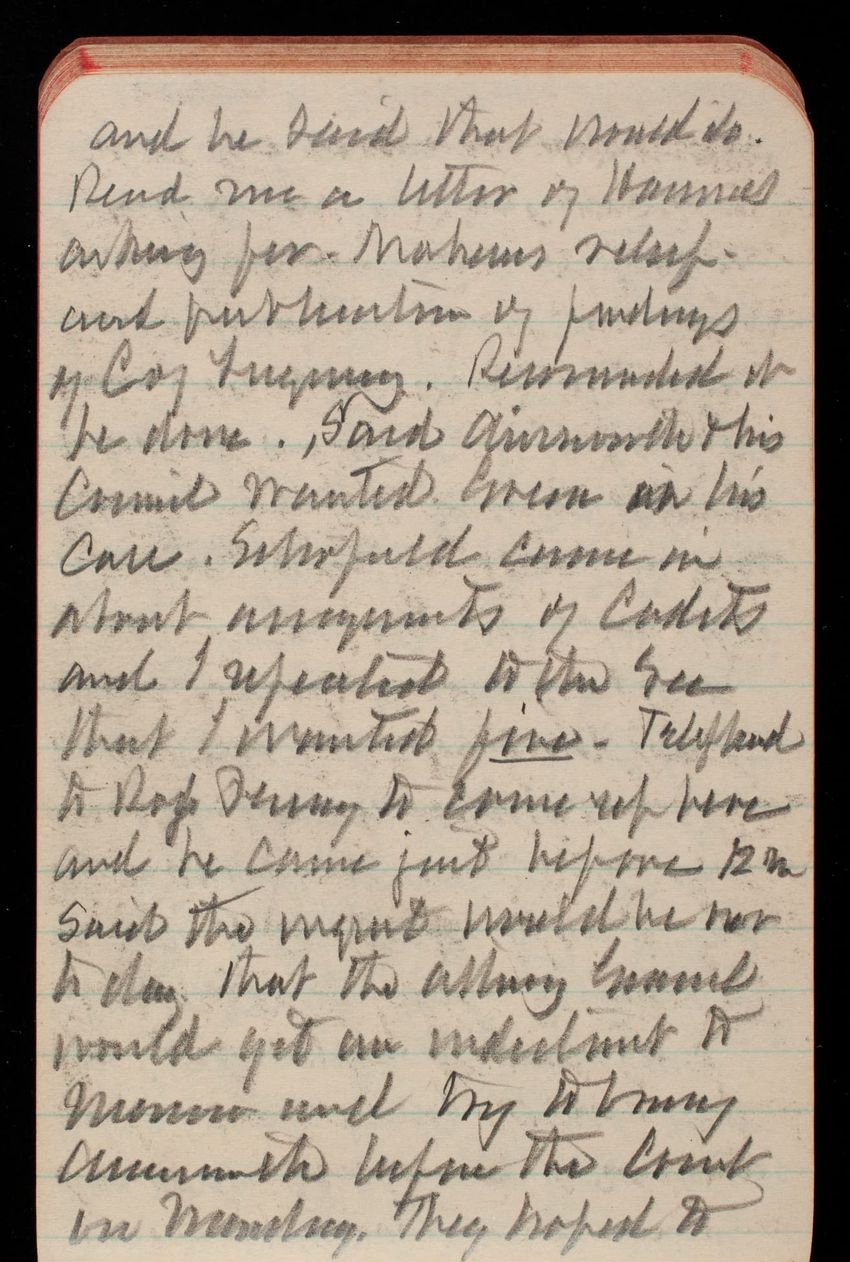 and he said that would do.
Read me a letter of
asking for relief
and publication of findings
of Co of Inquiry. Recomended it
be done. Said Ainsworth & his
Council wanted in his
Case. Schofield came in
about assignments of Cadets
and I repeated to the Sec
that I wanted five - Telephoned
to Rodg Denny to come up here
and he came just before 12 m
Said the inquest would be over
to day that the attorney General
would get an indictment to
morrow and try to bring
Ainsworth before the Court
on Monday. They hoped to